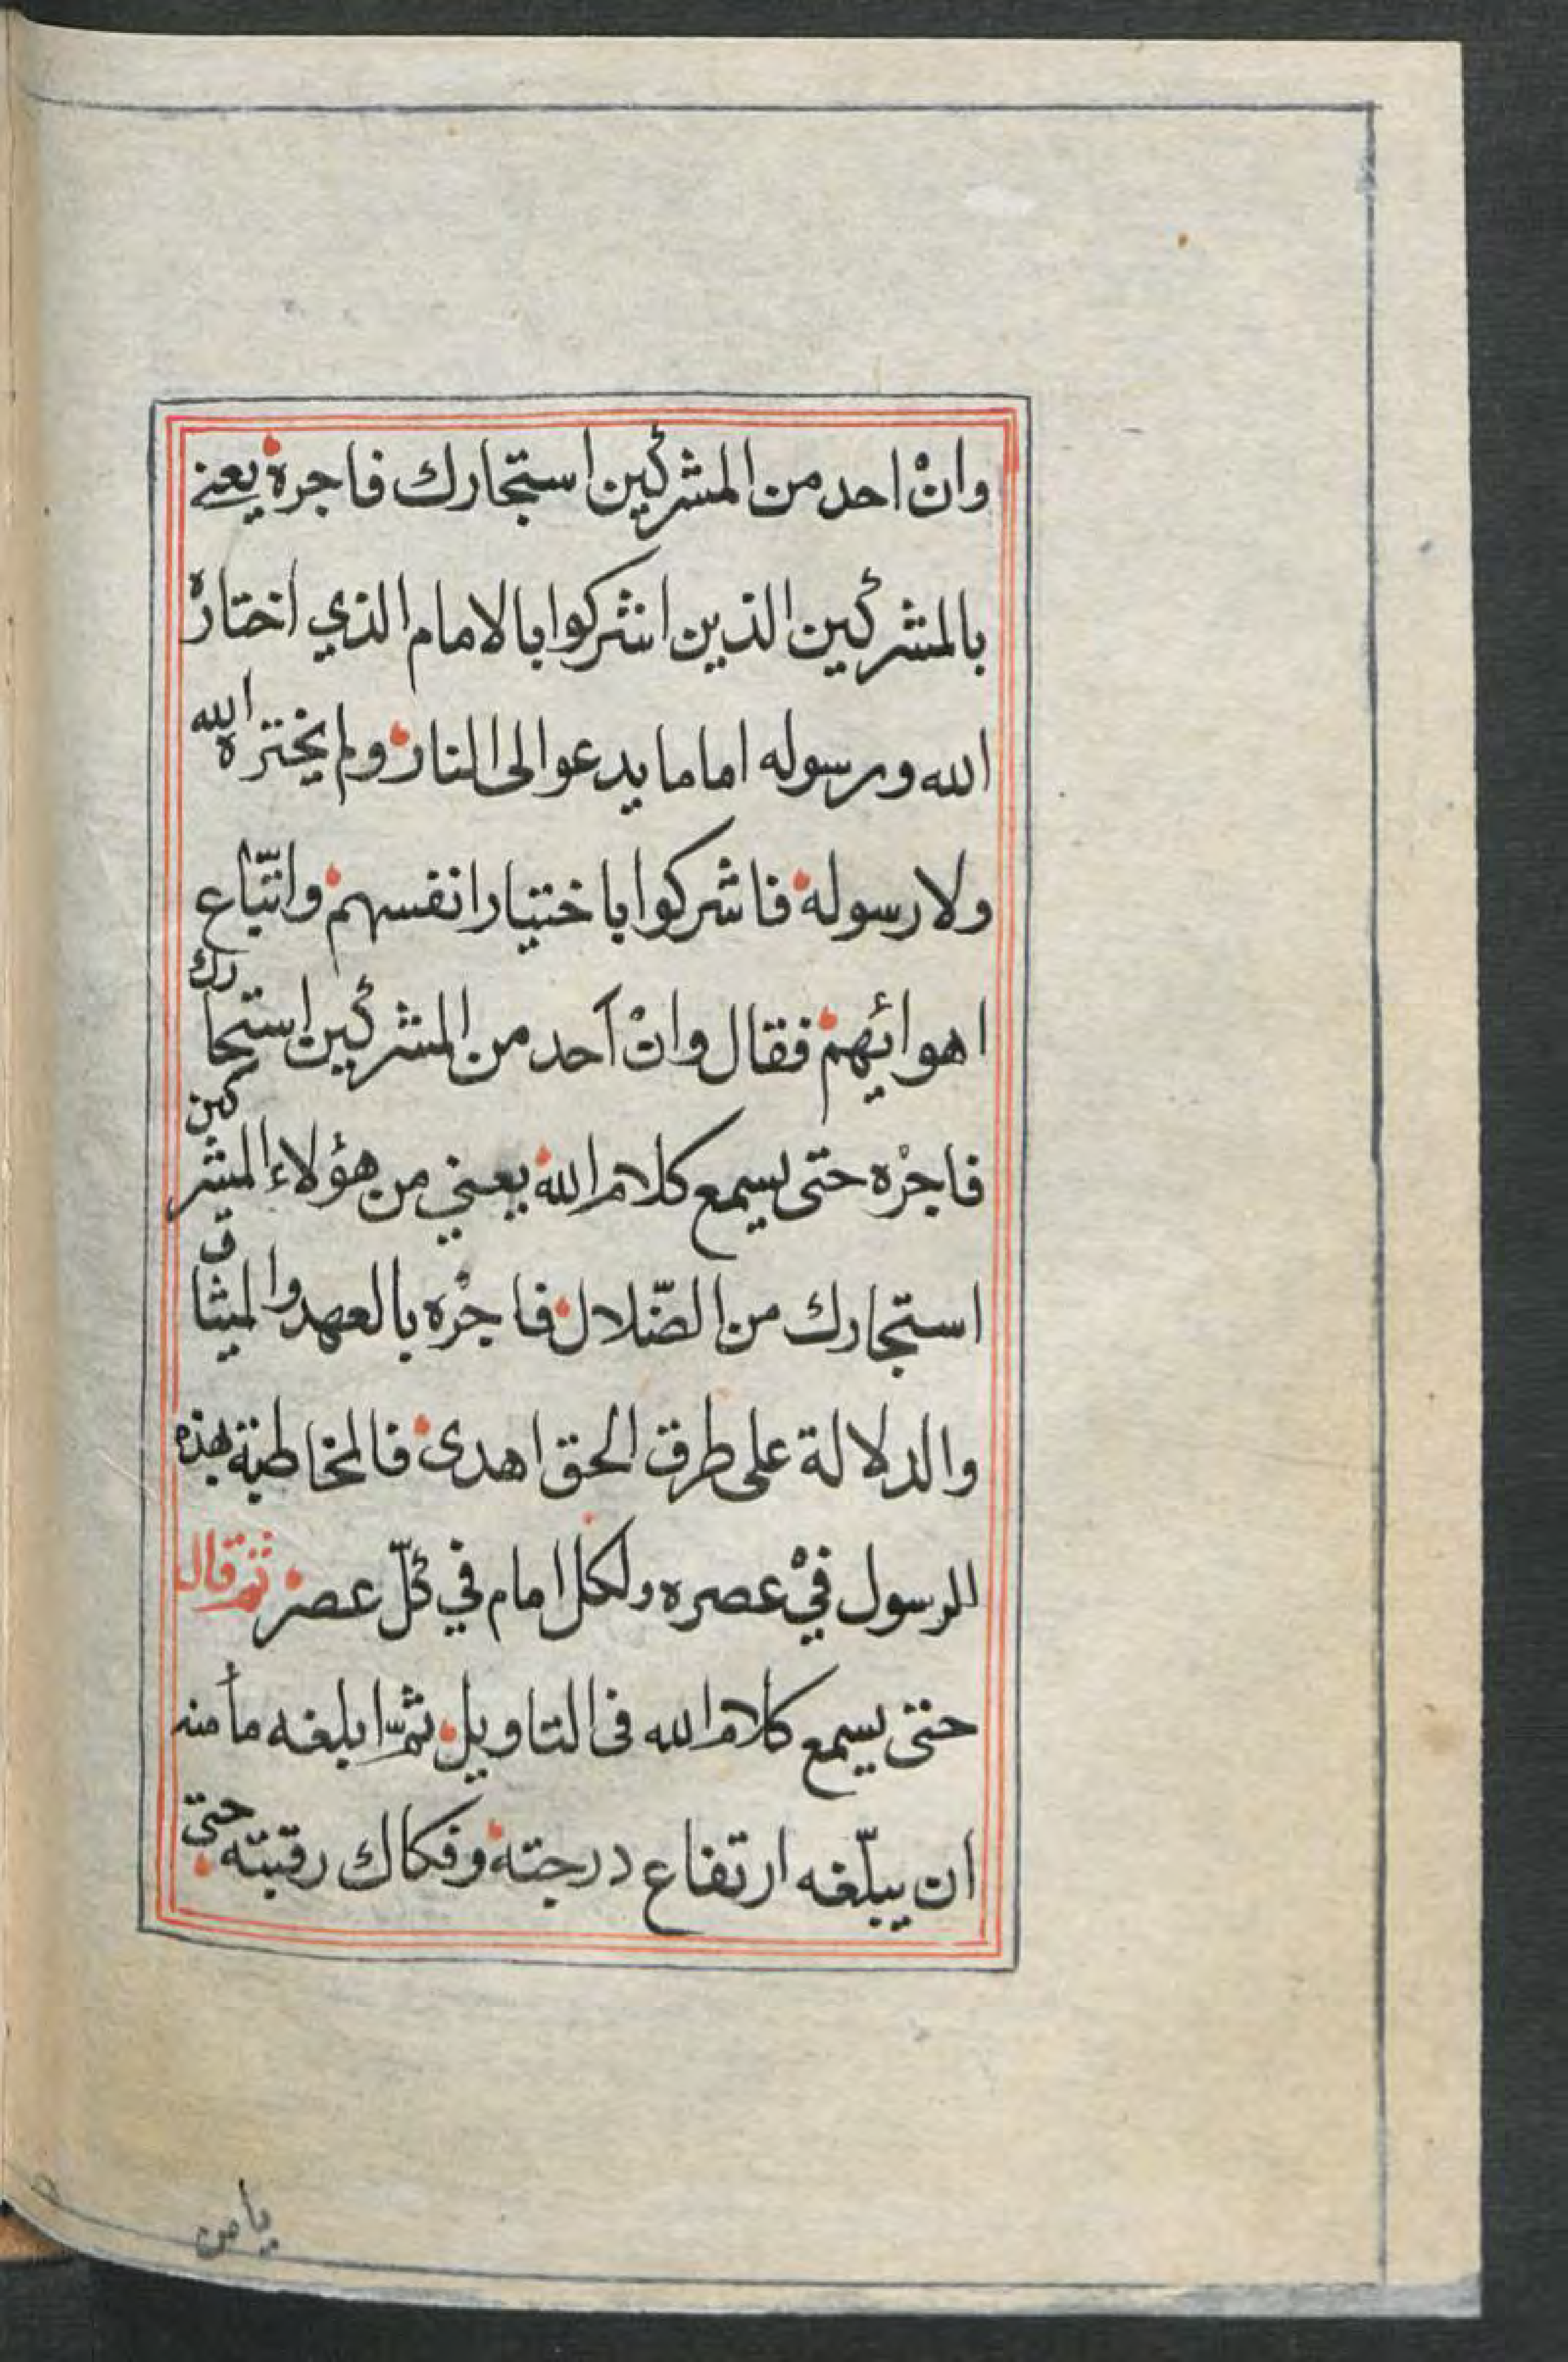 وانْ احد من المشركين استجارك فاجره يعنى
بالمشركين الذين اشركوا بالامام الذي اختارْه
الله ورسوله اماما يدعوا الى النار ولم يختره الله
ولا رسوله فاشركوا باختيار انفسهم واتّباع
اهوائهم فقال وانْ احد من المشركين استجارك
فاجرْه حتّى يسمع كلام الله يعني من هؤلاء المشركين
استجارك من الضّلال فاجرْه بالعهد والميثاق
والدلالة على طرق الحق اهدى فالمخاطبة بهذه
للرسول فيْ عصره ولكل امام في كلّ عصر ثم قال
حتى يسمع كلام الله فى التاويل ثمّ ابلغه مأمنه
ان يبلّغه ارتفاع درجته وفكاك رقبته حتى
يامن